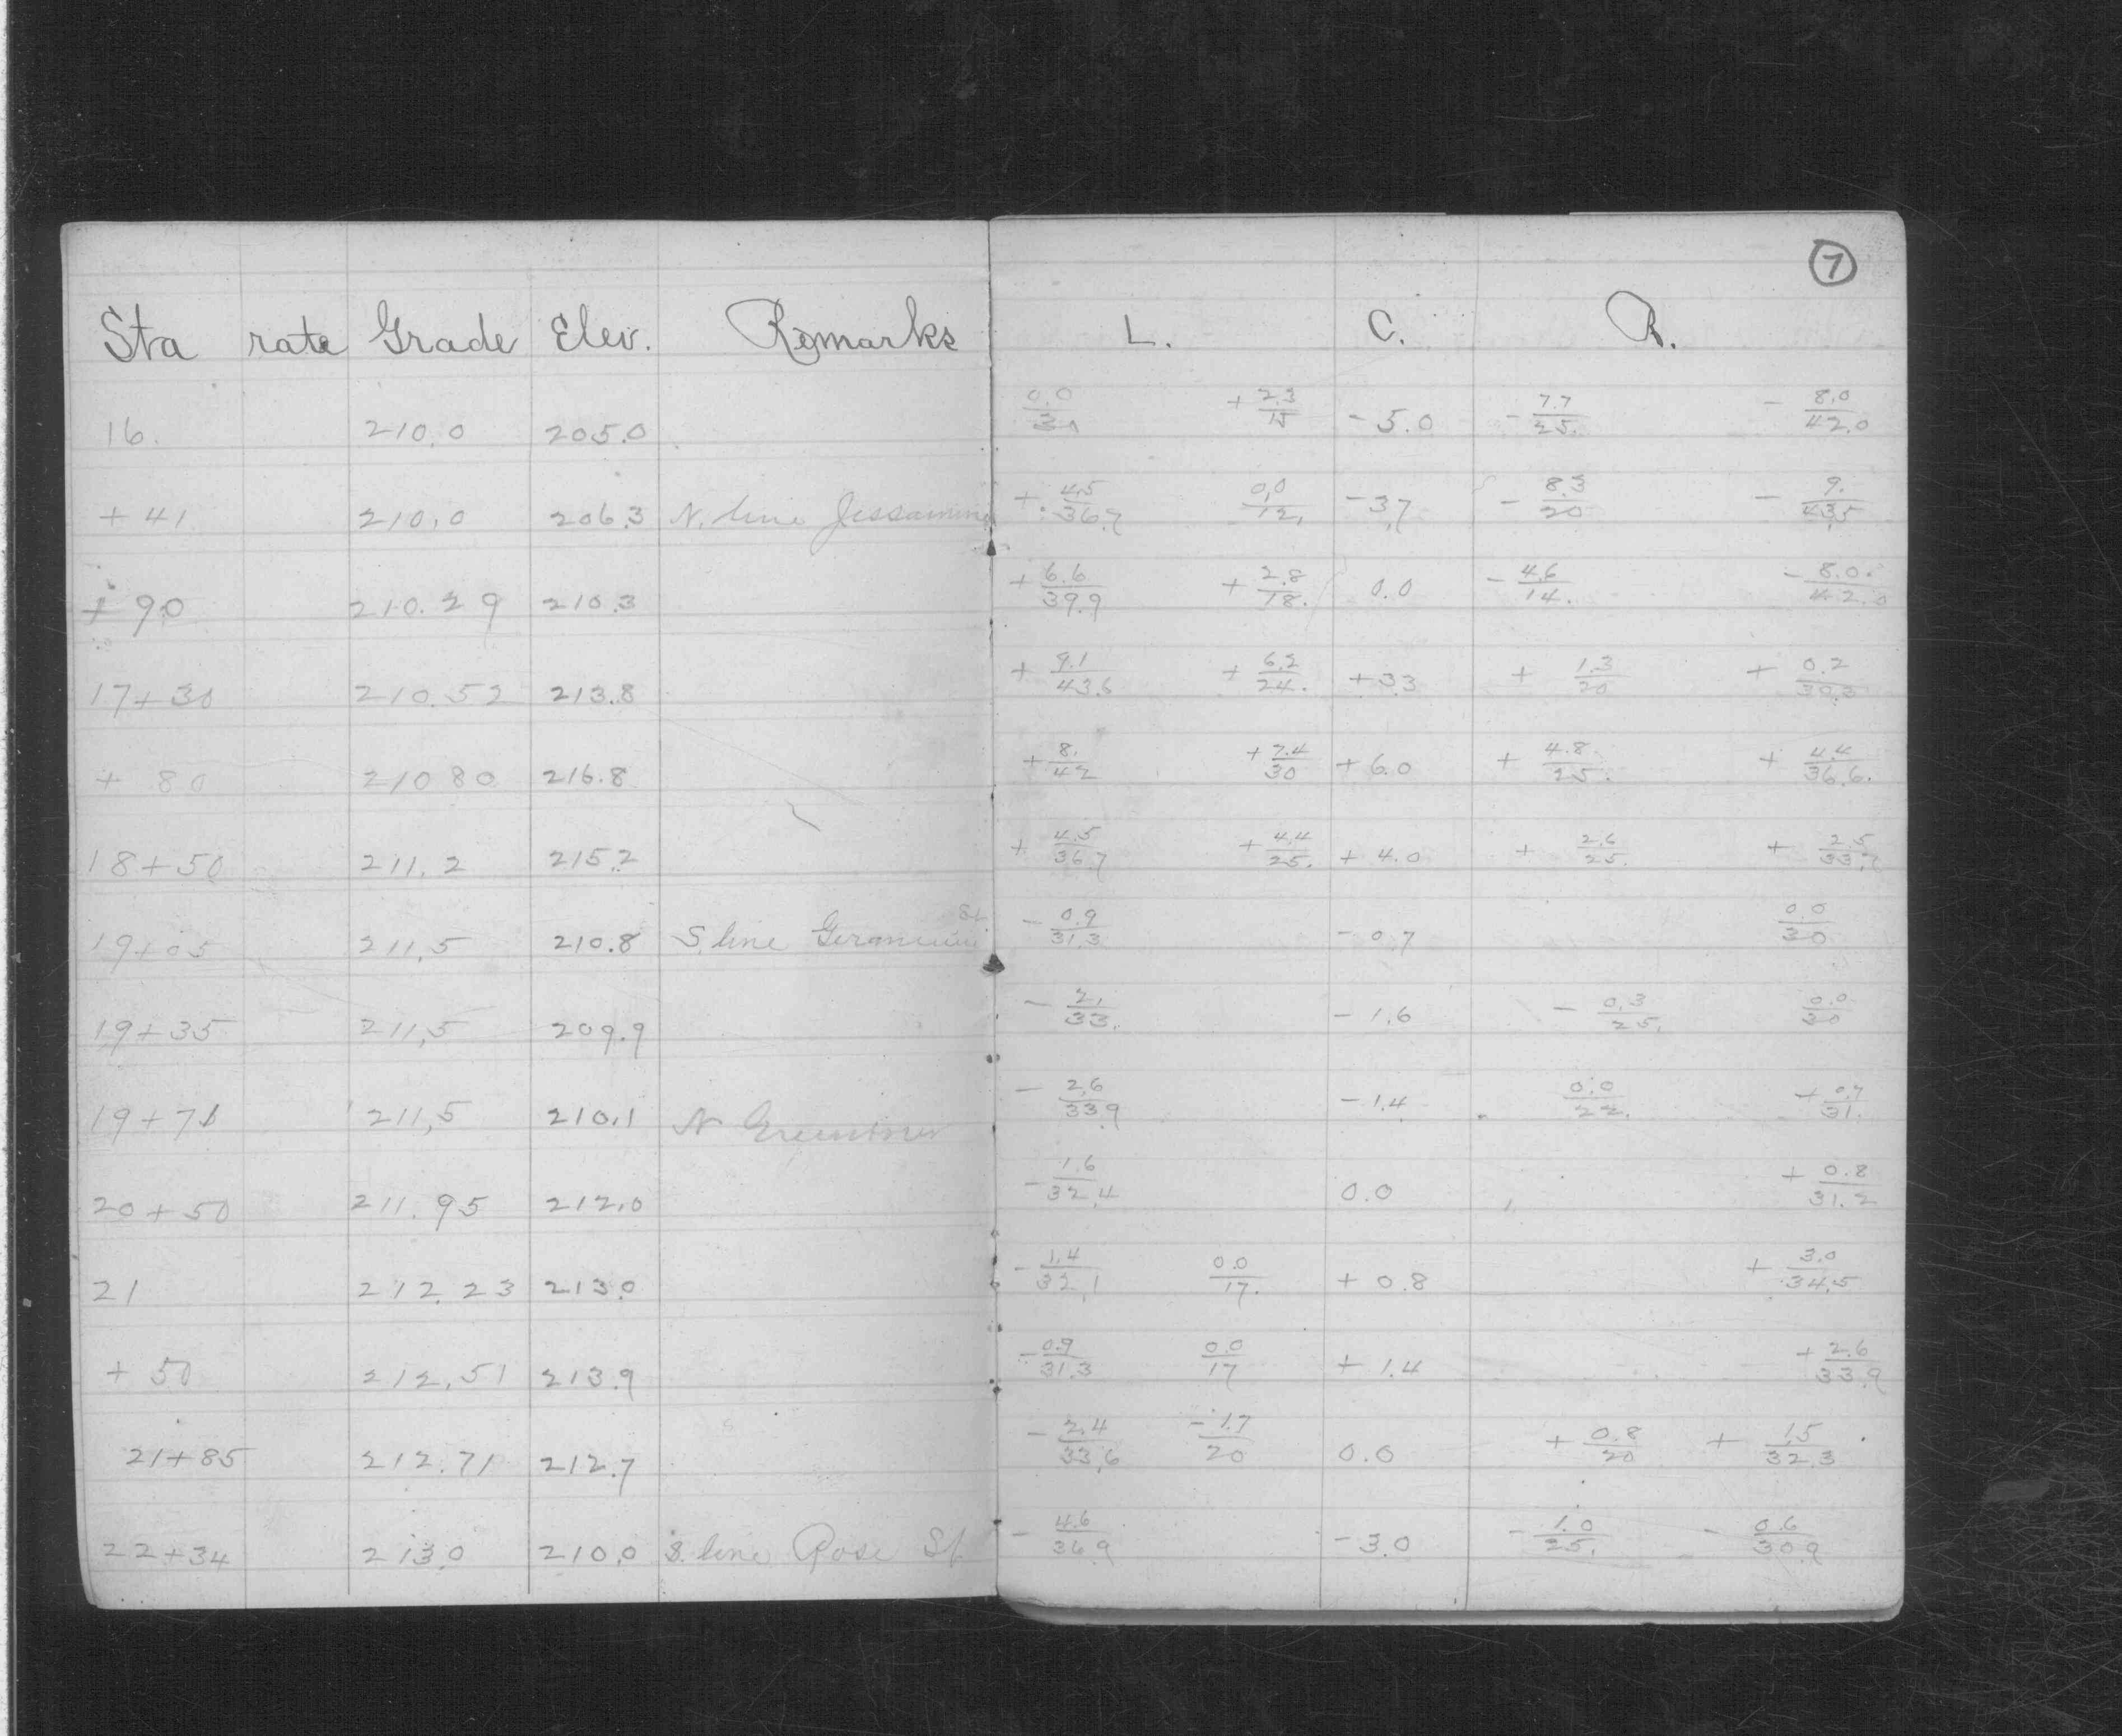 7
Sta rate Grade Elev. Remarks L. C. R.
16. 210.0 205.0 0.0/30 + 2.3/15 - 5.0 - 7.7/25. - 8.0/42.0
+ 41 210.0 206.3 N. line Jessamine + 4.5/36.7 0.0/12. - 3.7 - 8.3/20 - 9./43.5
+ 90 210.29 210.3 + 6.6/39.9 + 2.8/18. 0.0 - 4.6/14. - 8.0/42.0
17+30 210.52 213.8 + 9.1/43.6 + 6.2/24. + 3.3 + 1.3/20 + 0.2/30.3
+ 80 210 80 216.8 + 8./42 + 7.4/30 + 6.0 + 4.8/25. + 4.4/36.6.
18+50 211.2 215.2 + 4.5/36.7 + 4.4/25. + 4.0 + 2.6/25. + 2.5/33.7
19+05 211.5 210.8 S. line Geranium St - 0.9/31.3 - 0.7 0.0/30
19+35 211.5 209.9 - 2./33. - 1.6 - 0.3/25. 0.0/30
19+71 211.5 210.1 N - 2.6/33.9 - 1.4 0.0/22. + 0.7/31.
20+50 211.95 212.0 - 1.6/32.4 0.0 + 0.8/31.2
21 212.23 213.0 - 1.4/32.1 0.0/17. + 0.8 + 3.0/34.5
+ 50 212.51 213.9 - 0.9/31.3 0.0/17 + 1.4 + 2.6/33.9
21+85 212.71 212.7 - 2.4/33.6 - 1.7/20 0.0 + 0.8/20 + 1.5/32.3
22+34 213.0 210.0 S. line Rose St - 4.6/36.9 - 3.0 - 1.0/25. - 0.6/30.9